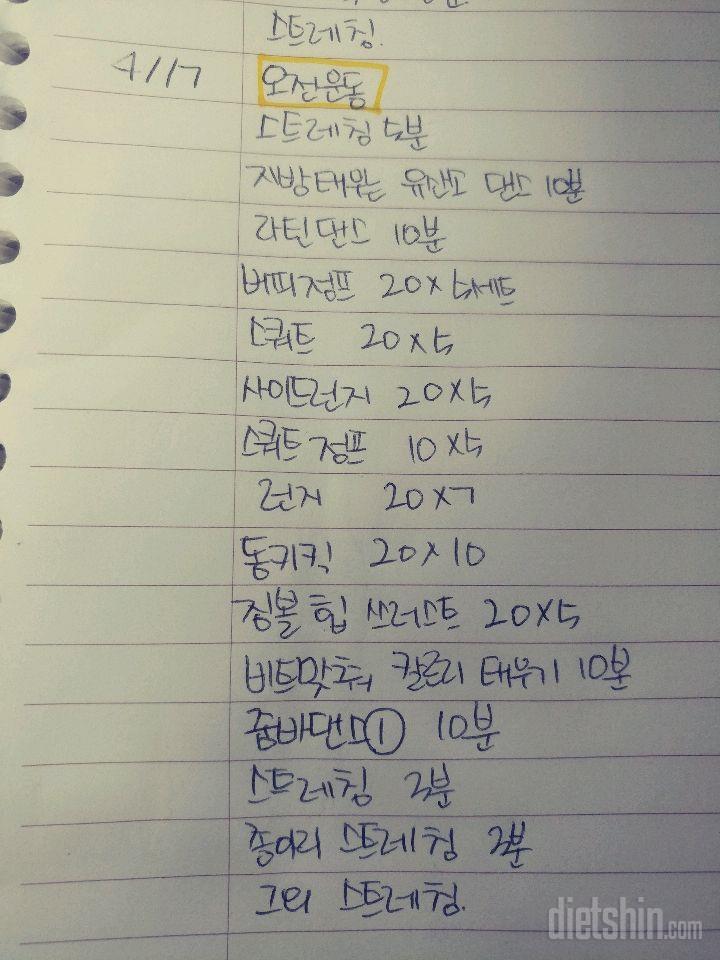 스트레칭.
4/17 오전운동
스트레칭 5분
지방태우는 유산소 댄스 10분
라틴댄스 10분
버피점프 20×5세트
스쿼트 20×5
사이드런지 20×5
스쿼트점프 10×5
런지 20×7
동키킥 20×10
짐볼 힙 쓰러스트 20×5
비트맞춰 칼로리 태우기 10분
줌바댄스① 10분
스트레칭 2분
종아리 스트레칭 2분
그외 스트레칭.
dietshin.com